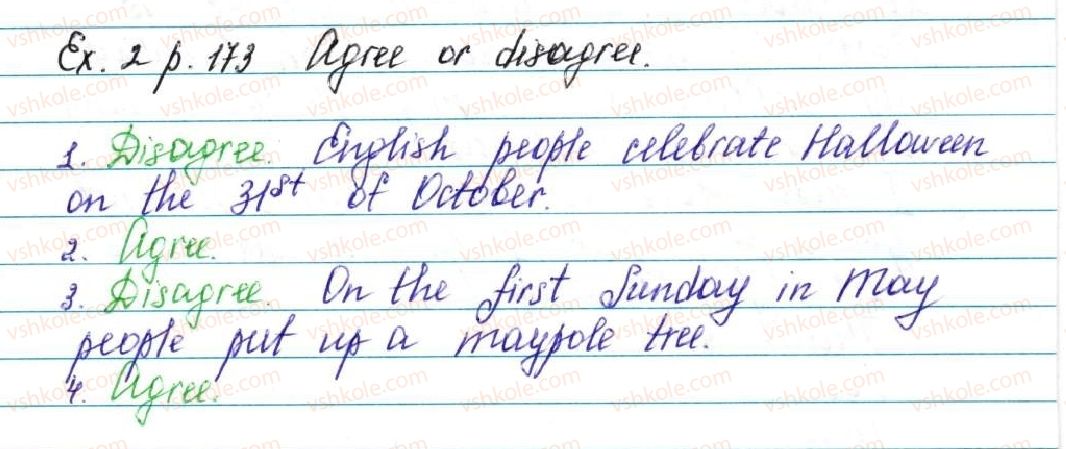 Ex. 2 p. 173 Agree or disagree.
1. Disagree. English people celebrate Halloween
on the 31st of October.
2. Agree.
3. Disagree. On the first Sunday in May
people put up a maypole tree.
4. Agree.